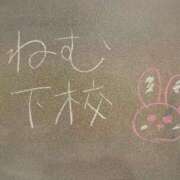 ねむ
下校